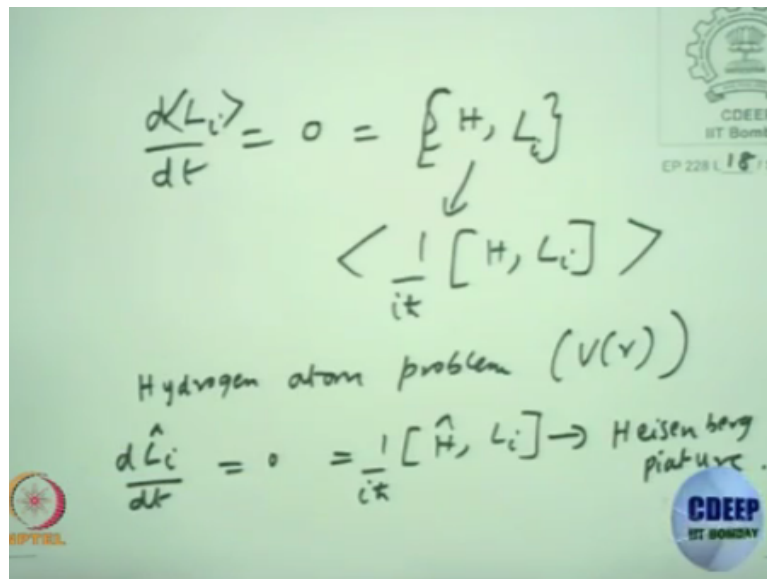 CDEEP
IIT Bomb
EP 228 L 18 /
d⟨L_i⟩/dt = 0 = {H, L_i}
↓
< 1/iħ [H, L_i] >
Hydrogen atom problem (V(r))
dL̂_i/dt = 0 = 1/iħ [Ĥ, L_i] → Heisenberg
piature.
NPTEL
CDEEP
IIT BOMBAY